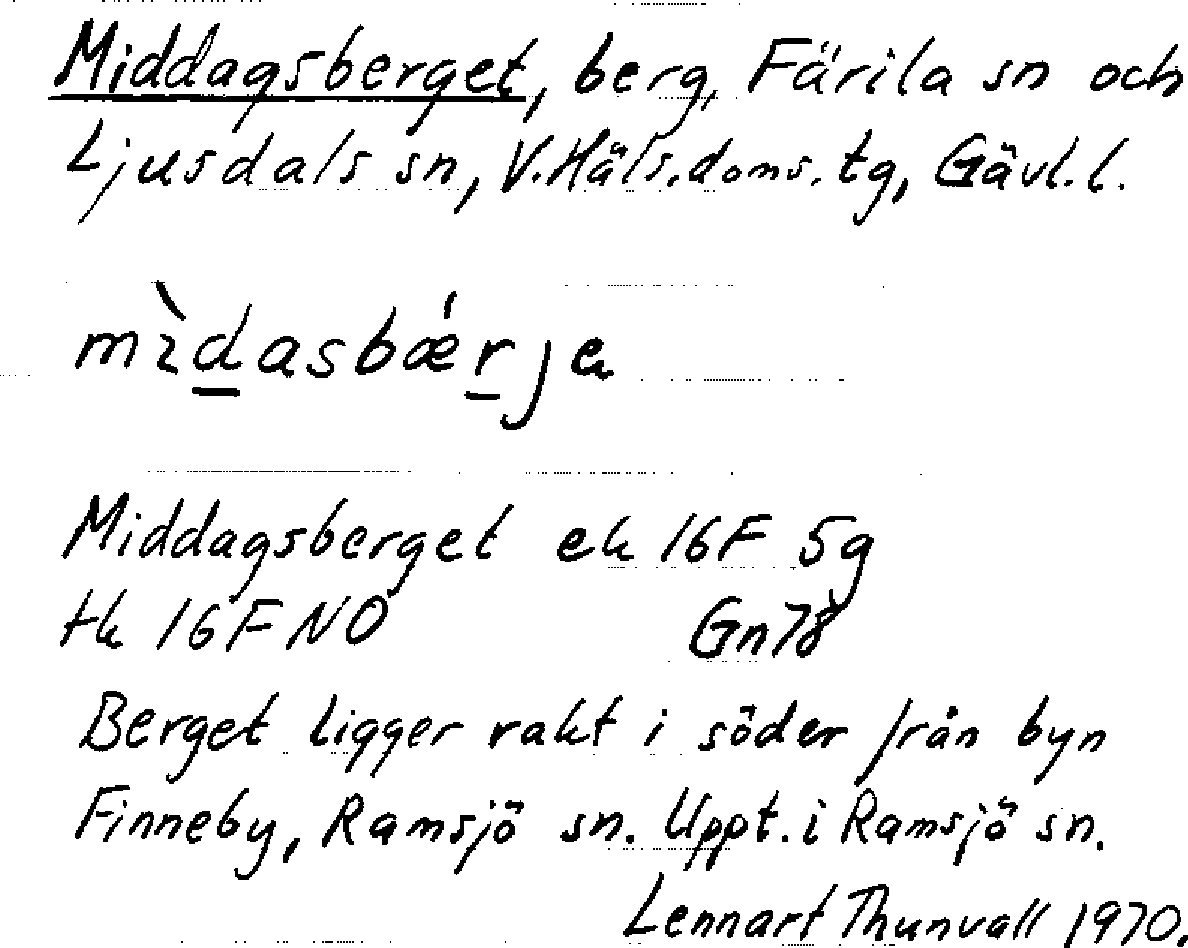 Middagsberget, berg, Färila sn och
Ljusdals sn, V.Häls.doms.tg, Gävl.l.
mı̀d̲asbǽr̲ja
Middagsberget ek 16F 5g
tk 16F NO Gn78
Berget ligger rakt i söder från byn
Finneby, Ramsjö sn. Uppt. i Ramsjö sn.
Lennart Thunvall 1970.